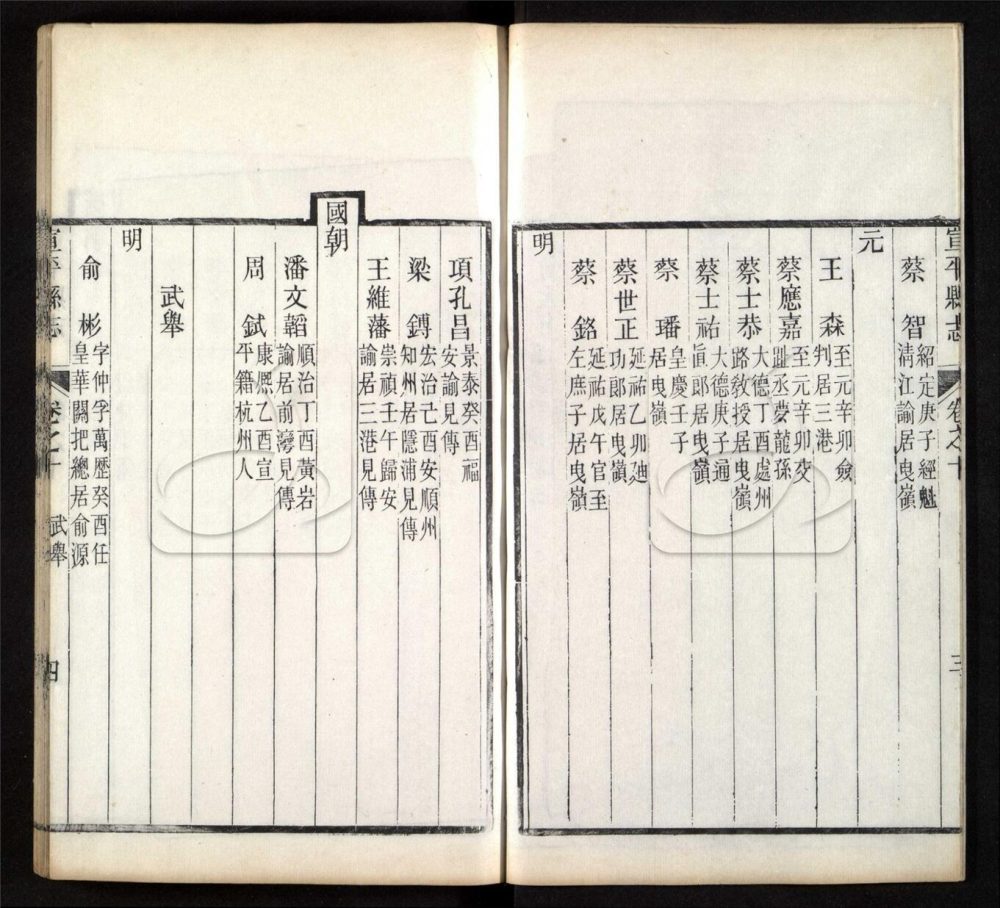 宣平縣志 卷之十 三
蔡智 紹定庚子經魁
清江諭居曳嶺
元
王森 至元辛卯僉
判居三港
蔡應嘉 至元辛卯
丞夢龍孫
蔡士恭 大德丁酉處州
路敎授居曳嶺
蔡士祐 大德庚子通
直郎居曳嶺
蔡璠 皇慶壬子
居曳嶺
蔡世正 延祐乙卯廸
功郎居曳嶺
蔡銘 延祐戊午官至
左庶子居曳嶺
明
項孔昌 景泰癸酉福
安諭見傳
梁鎛 宏治己酉安順州
知州居隱浦見傳
王維藩 崇禎壬午歸安
諭居三港見傳
國朝
潘文韜 順治丁酉黃岩
諭居前灣見傳
周鉽 康熈乙酉宣
平籍杭州人
武舉
明
俞彬 字仲孚萬歷癸酉任
皇華關把總居俞源
宣平縣志 卷之十 武舉 四